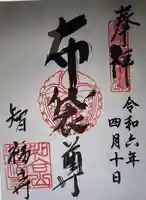 奉拝
令和六年
四月十日
布袋尊